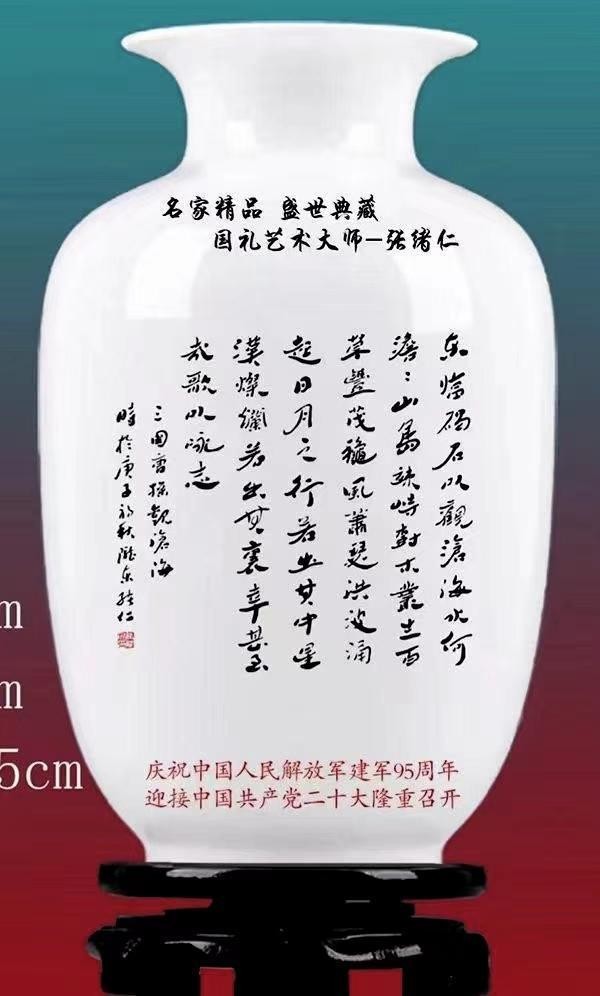 名家精品 盛世典藏
国礼艺术大师—张绪仁
东临碣石以觀滄海水何
澹々山島竦峙樹木叢生百
草豐茂穐風蕭瑟洪波涌
起日月之行若出其中星
漢燦爛若出其裏幸甚至
哉歌以咏志
三国曹操觀滄海
時於庚子初秋陇东绪仁
m
m
5cm
庆祝中国人民解放军建军95周年
迎接中国共产党二十大隆重召开